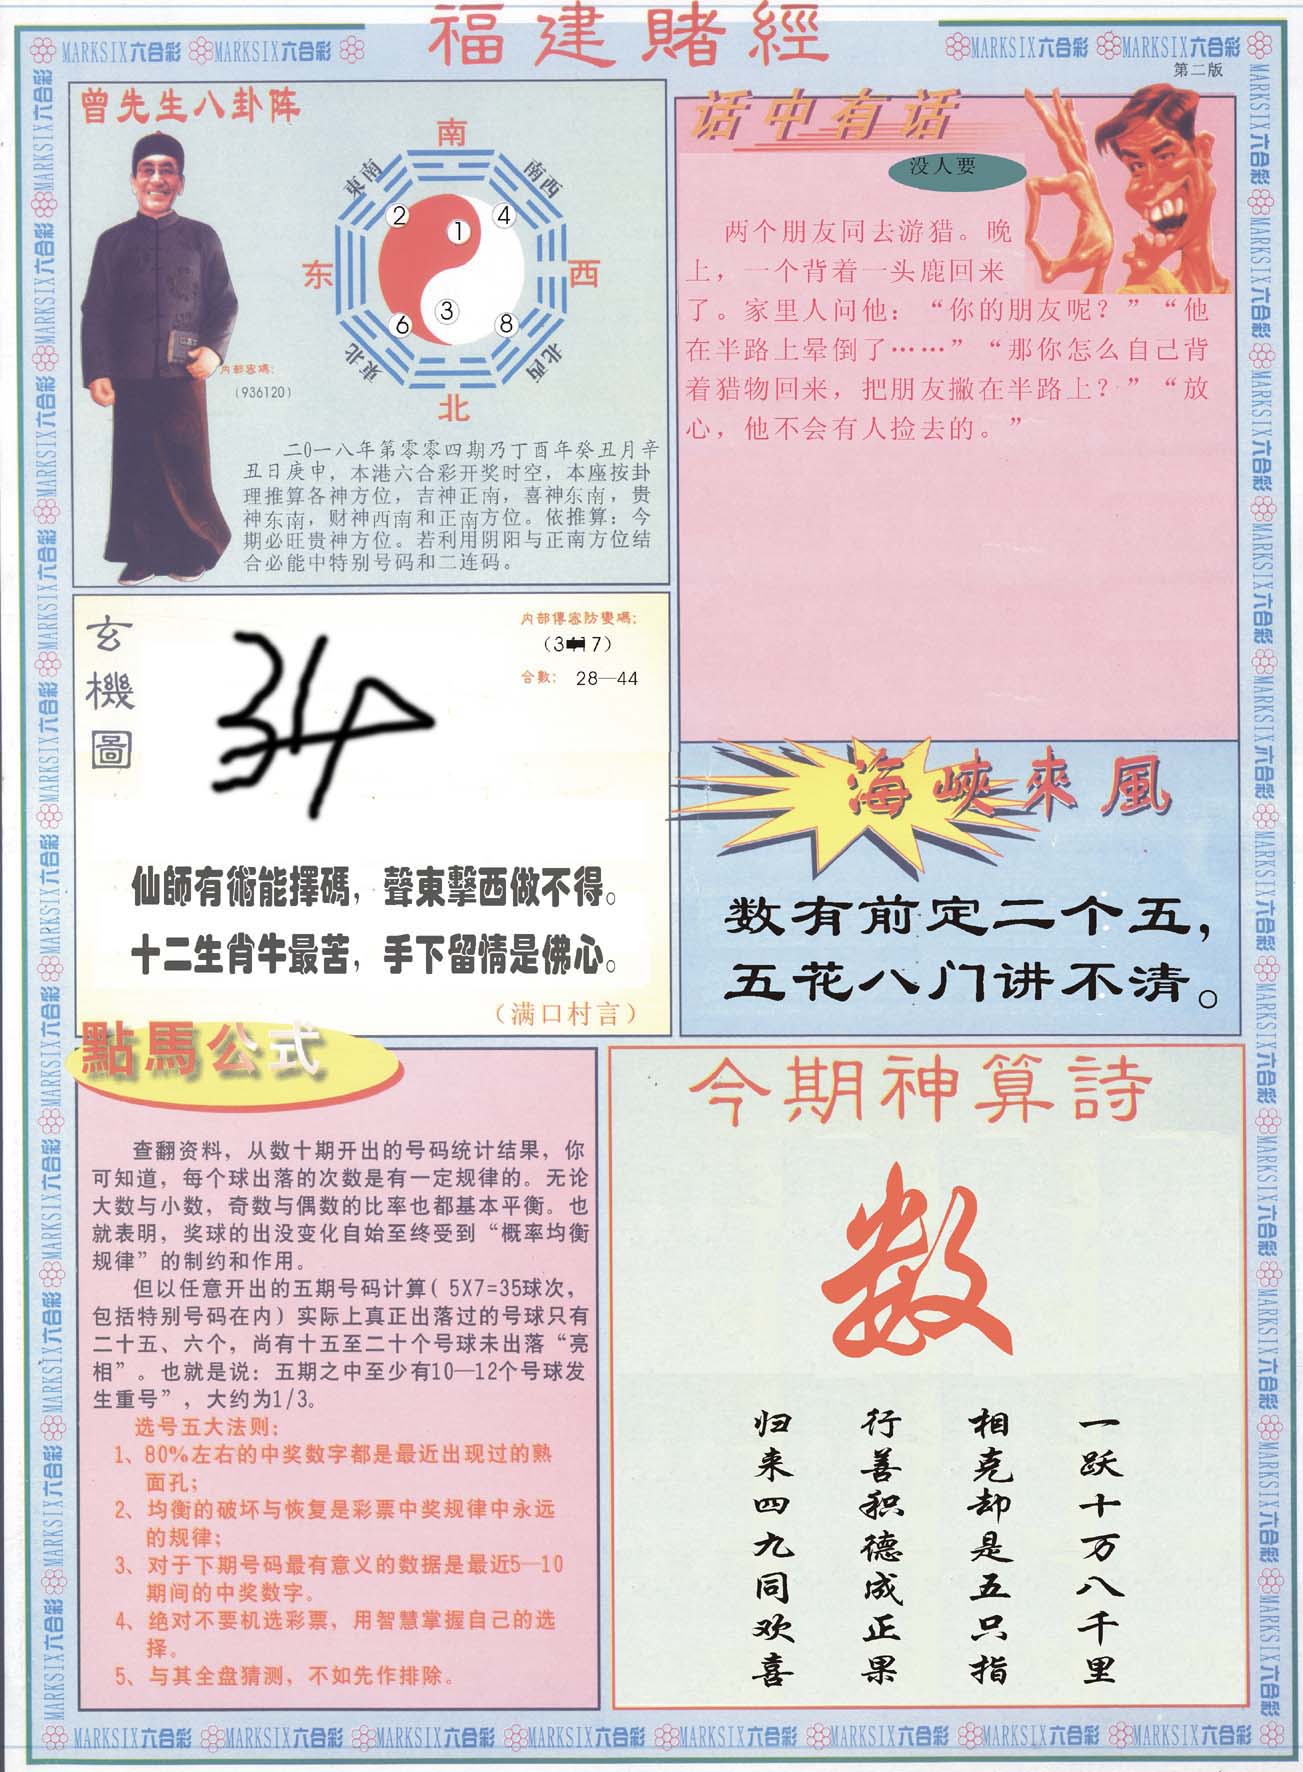 福建賭經
MARKSIX六合彩 MARKSIX六合彩
MARKSIX六合彩 MARKSIX六合彩
第二版
曾先生八卦阵
南
東南
南西
2
1
4
东
西
3
6
8
東北
北西
北
内部密碼:
(936120)
二0一八年第零零四期乃丁酉年癸丑月辛
丑日庚申，本港六合彩开奖时空，本座按卦
理推算各神方位，吉神正南，喜神东南，贵
神东南，财神西南和正南方位。依推算：今
期必旺贵神方位。若利用阴阳与正南方位结
合必能中特别号码和二连码。
话中有话
没人要
两个朋友同去游猎。晚
上，一个背着一头鹿回来
了。家里人问他：“你的朋友呢？”“他
在半路上晕倒了……”“那你怎么自己背
着猎物回来，把朋友撇在半路上？”“放
心，他不会有人捡去的。”
玄機圖
内部傳密防變碼:
合數: 28—44
仙師有術能擇碼，聲東擊西做不得。
十二生肖牛最苦，手下留情是佛心。
（满口村言）
海峽來風
数有前定二个五，
五花八门讲不清。
點馬公式
查翻资料，从数十期开出的号码统计结果，你
可知道，每个球出落的次数是有一定规律的。无论
大数与小数，奇数与偶数的比率也都基本平衡。也
就表明，奖球的出没变化自始至终受到“概率均衡
规律”的制约和作用。
但以任意开出的五期号码计算( 5X7=35球次，
包括特别号码在内）实际上真正出落过的号球只有
二十五、六个，尚有十五至二十个号球未出落“亮
相”。也就是说：五期之中至少有10—12个号球发
生重号”，大约为1/3。
选号五大法则：
1、80%左右的中奖数字都是最近出现过的熟
面孔；
2、均衡的破坏与恢复是彩票中奖规律中永远
的规律；
3、对于下期号码最有意义的数据是最近5—10
期间的中奖数字。
4、绝对不要机选彩票，用智慧掌握自己的选
择。
5、与其全盘猜测，不如先作排除。
今期神算詩
数
一跃十万八千里
相克却是五只指
行善积德成正果
归来四九同欢喜
MARKSIX六合彩 MARKSIX六合彩 MARKSIX六合彩 MARKSIX六合彩 MARKSIX六合彩 MARKSIX六合彩 MARKSIX六合彩 MARKSIX六合彩